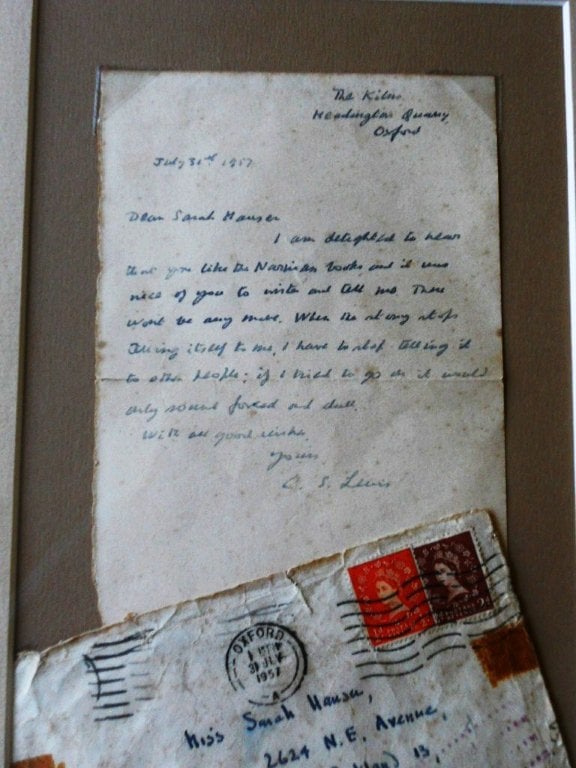 The Kilns
Headington Quarry
Oxford
July 31st 1957
Dear Sarah Hauser
I am delighted to hear
that you like the Narnian books and it was
nice of you to write and tell me. There
won't be any more. When the story stops
telling itself to me, I have to stop telling it
to other people; if I tried to go on it would
only sound forced and dull.
With all good wishes
yours
C. S. Lewis
OXFORD
31 JLY
1957
A
Miss Sarah Hauser,
2624 N.E. Avenue,
13,